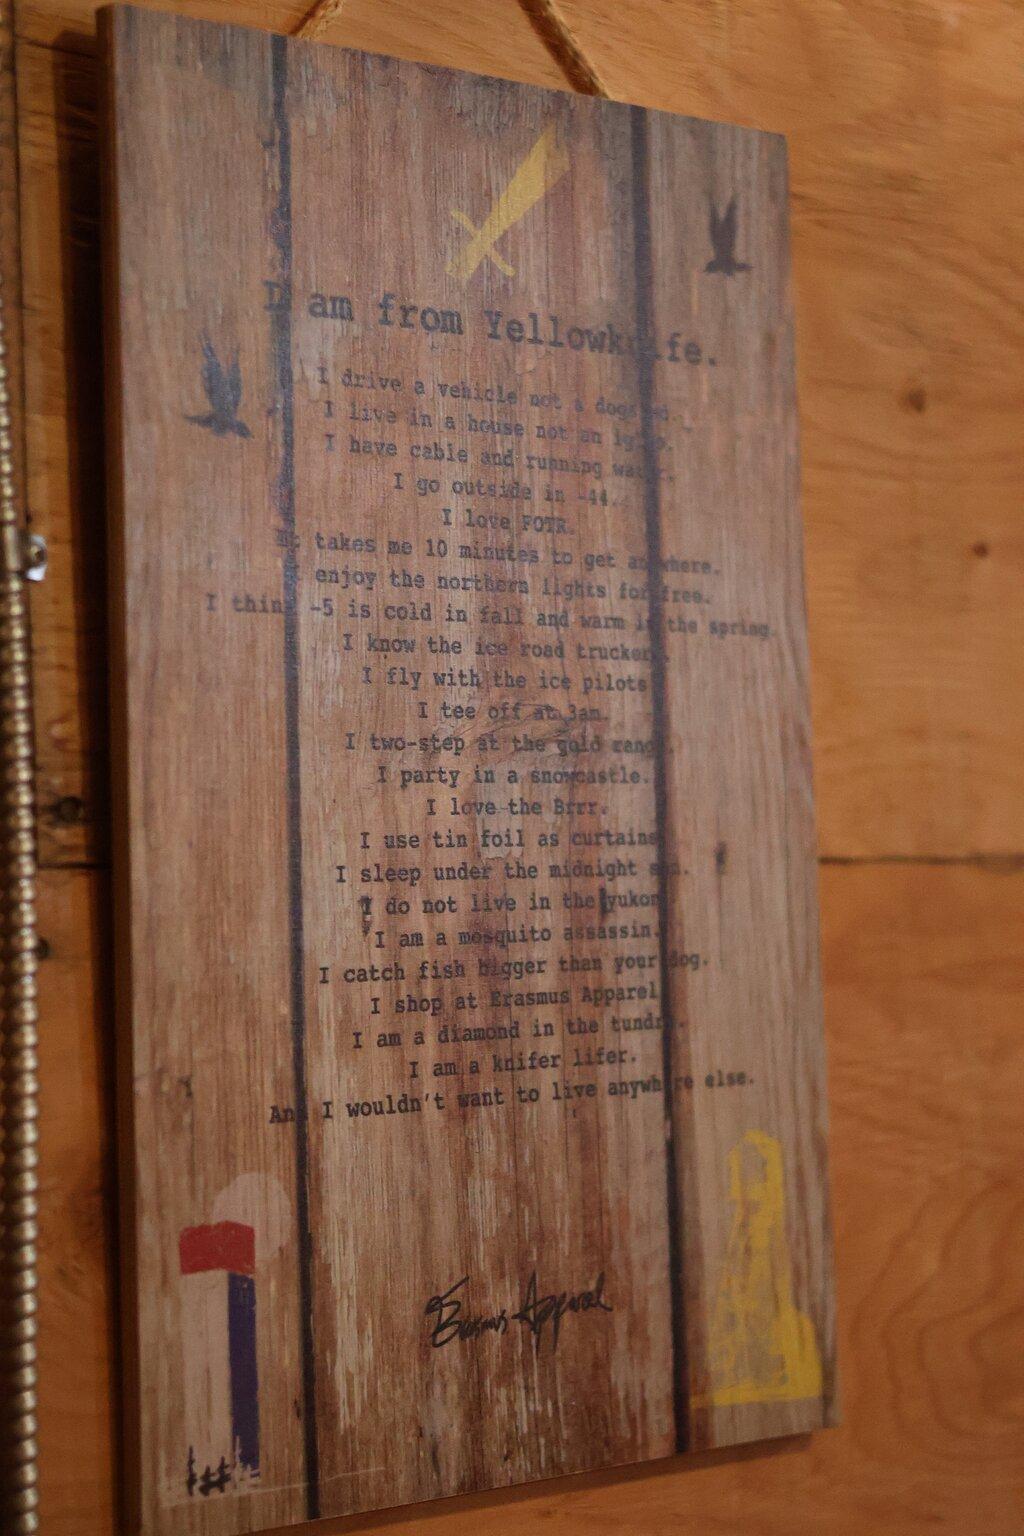 I am from Yellowknife.
I drive a vehicle not a dogsled.
I live in a house not an igloo.
I have cable and running water.
I go outside in -44.
I love FOTR.
It takes me 10 minutes to get anywhere.
I enjoy the northern lights for free.
I think -5 is cold in fall and warm in the spring.
I know the ice road truckers.
I fly with the ice pilots
I tee off at 3am.
I two-step at the gold range.
I party in a snowcastle.
I love the Brrr.
I use tin foil as curtains
I sleep under the midnight sun.
I do not live in the yukon
I am a mosquito assassin.
I catch fish bigger than your dog.
I shop at Erasmus Apparel
I am a diamond in the tundra.
I am a knifer lifer.
And I wouldn't want to live anywhere else.
Erasmus Apparel